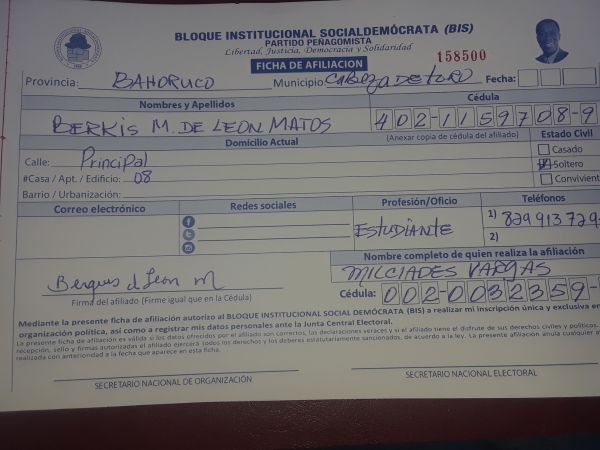 BLOQUE INSTITUCIONAL SOCIALDEMÓCRATA (BIS)
PARTIDO PEÑAGOMISTA
Libertad, Justicia, Democracia y Solidaridad
FICHA DE AFILIACION 158500
Provincia: BAHORUCO Municipio: CABEZA DE TORO Fecha:
Nombres y Apellidos Cédula
BERKIS M. DE LEON MATOS 402-1159708-9
Domicilio Actual (Anexar copia de cédula del afiliado) Estado Civil
Calle: Principal Casado
#Casa / Apt. / Edificio: 08 Soltero
Barrio / Urbanización: Convivient
Correo electrónico Redes sociales Profesión/Oficio Teléfonos
ESTUDIANTE 1) 829 913 729-
2)
Nombre completo de quien realiza la afiliación
MILCIADES VARGAS
Berquis d Leon M
Firma del afiliado (Firme igual que en la Cédula) Cédula: 002-0032359-
Mediante la presente ficha de afiliación autorizo al BLOQUE INSTITUCIONAL SOCIAL DEMÓCRATA (BIS) a realizar mi inscripción única y exclusiva en
organización política, así como a registrar mis datos personales ante la Junta Central Electoral.
La presente ficha de afiliación es válida si los datos ofrecidos por el afiliado son correctos, las declaraciones veraces y si el afiliado tiene el disfrute de sus derechos civiles y políticos.
recepción, sello y firmas autorizadas el afiliado ejercerá todos los derechos y los deberes estatutariamente sancionados, de acuerdo a la ley. La presente afiliación anula cualquier
realizada con anterioridad a la fecha que aparece en esta ficha.
SECRETARIO NACIONAL DE ORGANIZACIÓN SECRETARIO NACIONAL ELECTORAL